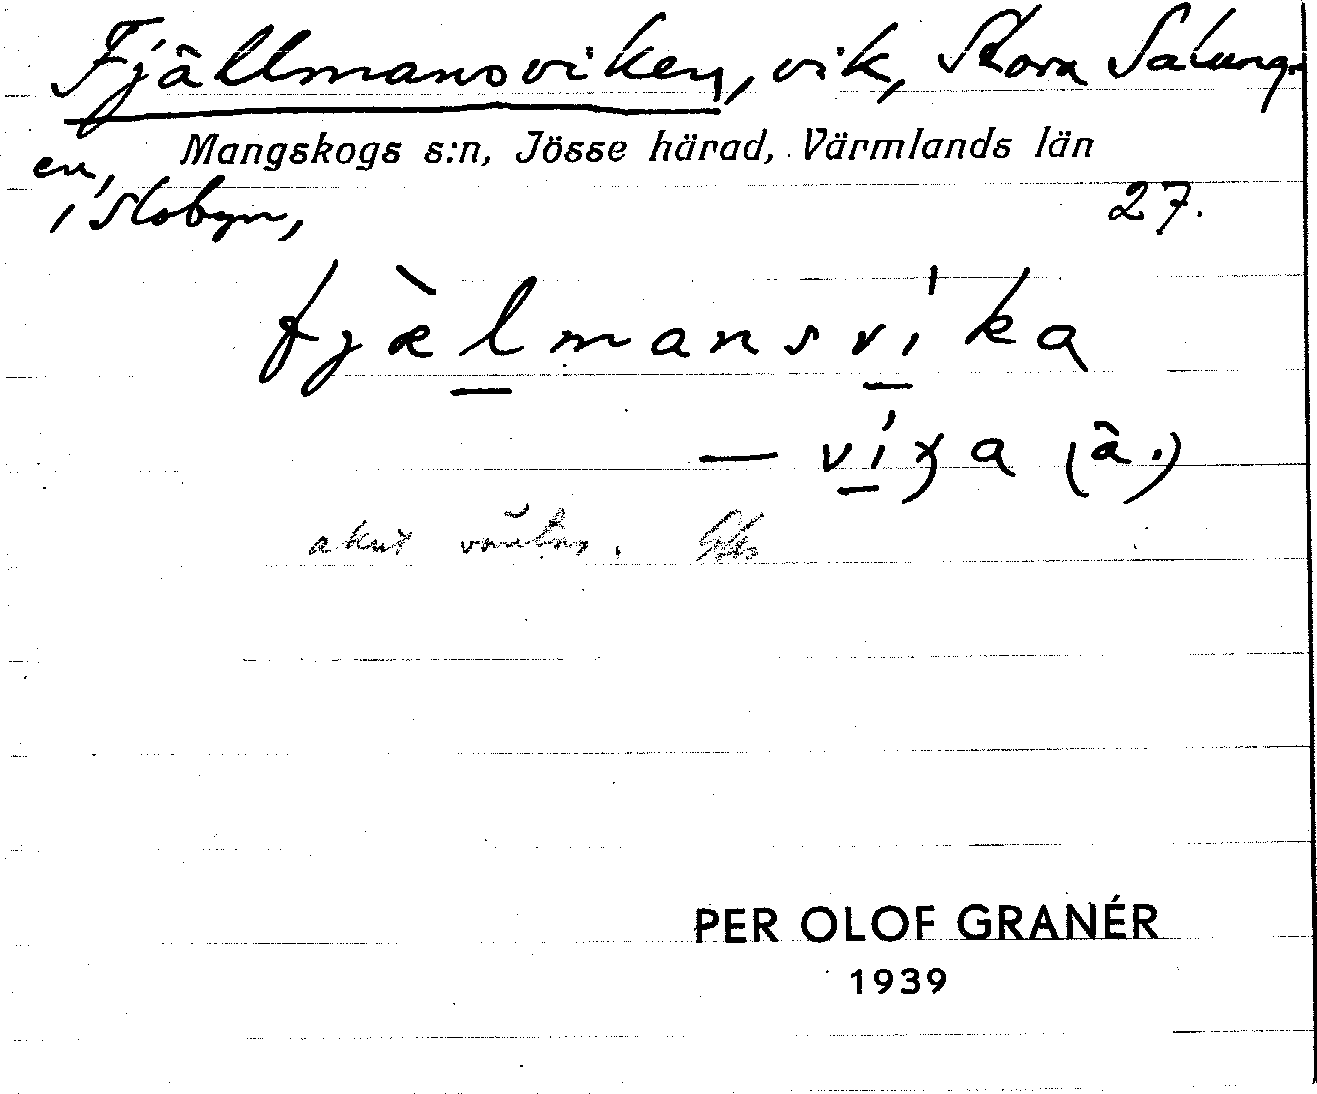 Fjällmansviken, vik, Stora Salung-
en,
Mangskogs s:n, Jösse härad, Värmlands län
i Slobyn,
27.
fjæ̀lmansvíka
— víɟa (ä.)
akut
PER OLOF GRANÉR
1939